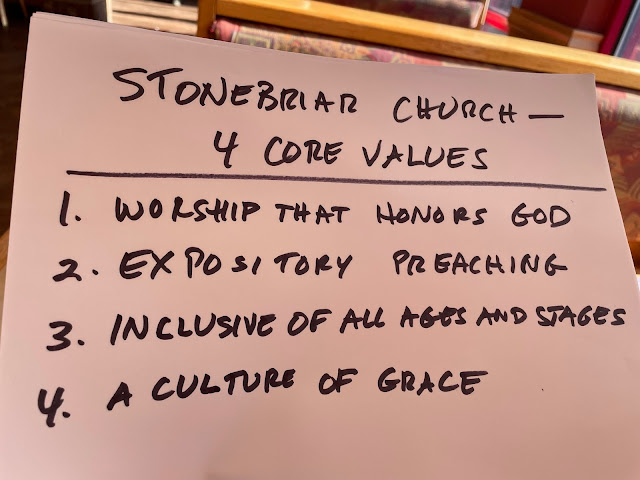 STONEBRIAR CHURCH —
4 CORE VALUES
1. WORSHIP THAT HONORS GOD
2. EXPOSITORY PREACHING
3. INCLUSIVE OF ALL AGES AND STAGES
4. A CULTURE OF GRACE